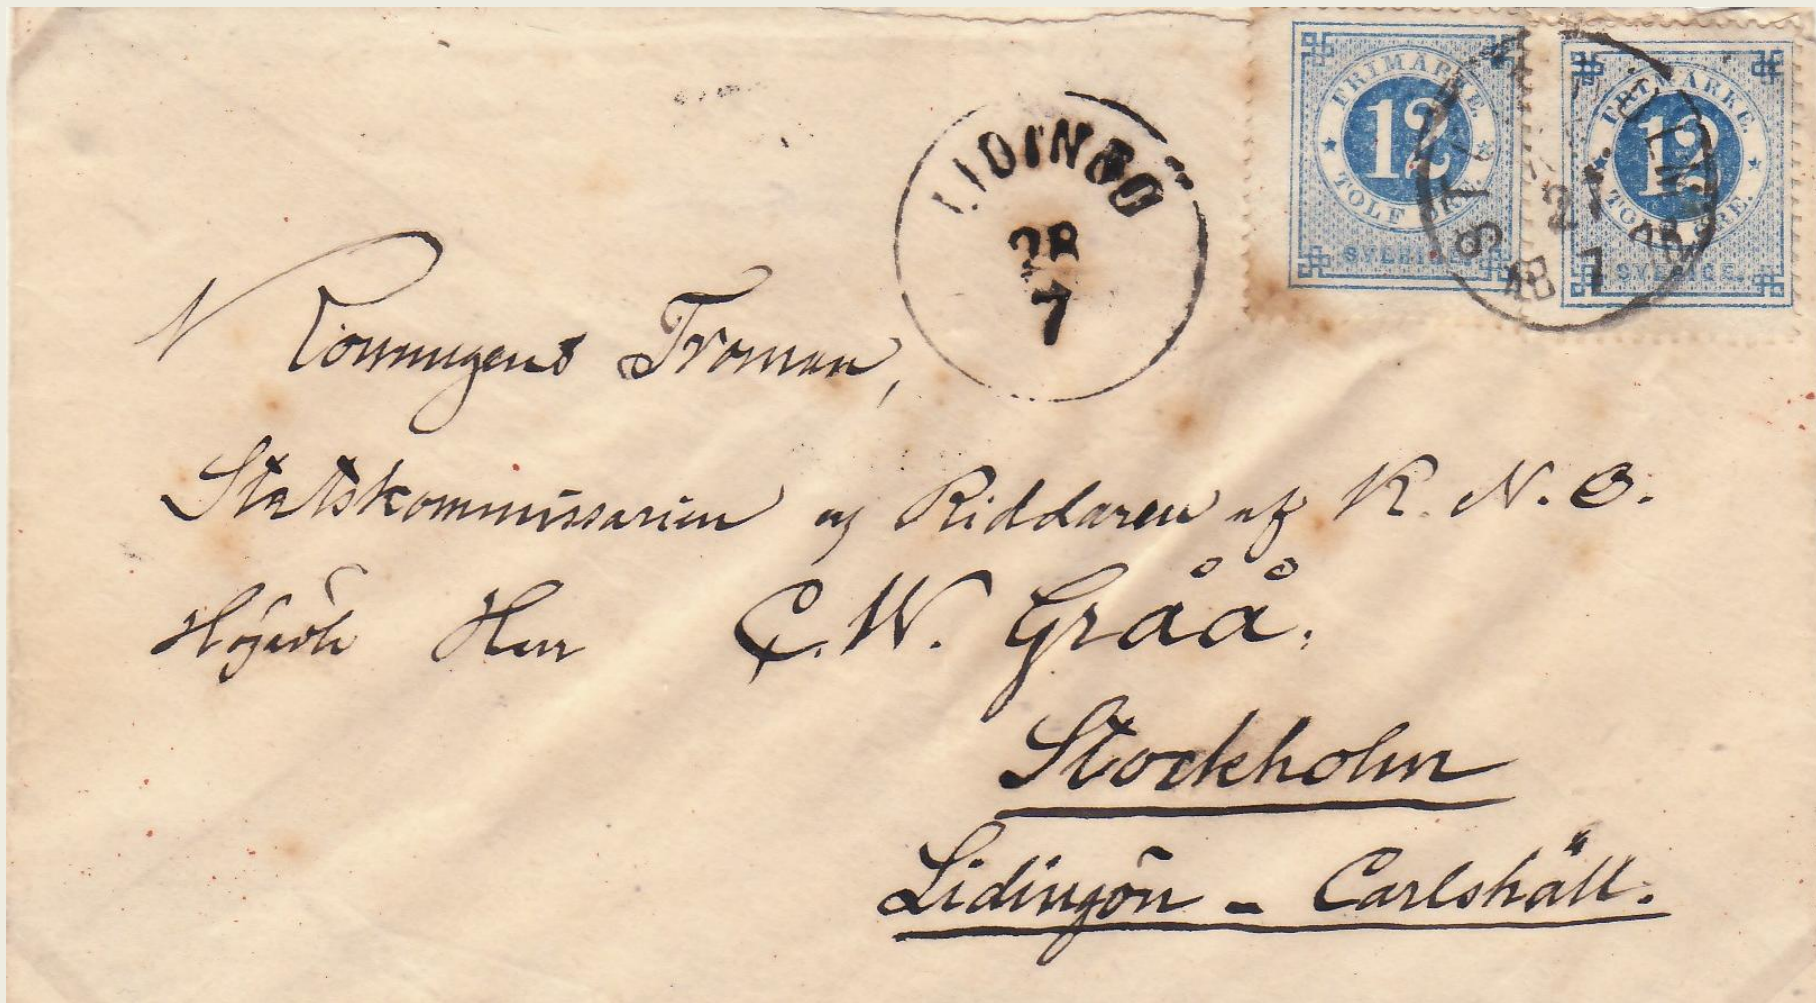 FRIMÄRKE
12
TOLF ÖRE
SVERIGE
FRIMÄRKE
12
TOLF ÖRE.
SVERIGE.
LIDINGÖ
28
7
STOCKHOLM
7
Konungens Troman,
Statskommissarien og Riddaren af K. N. O.
Herr C. W. Gråå.
Stockholm
Lidingön - Carlshäll.